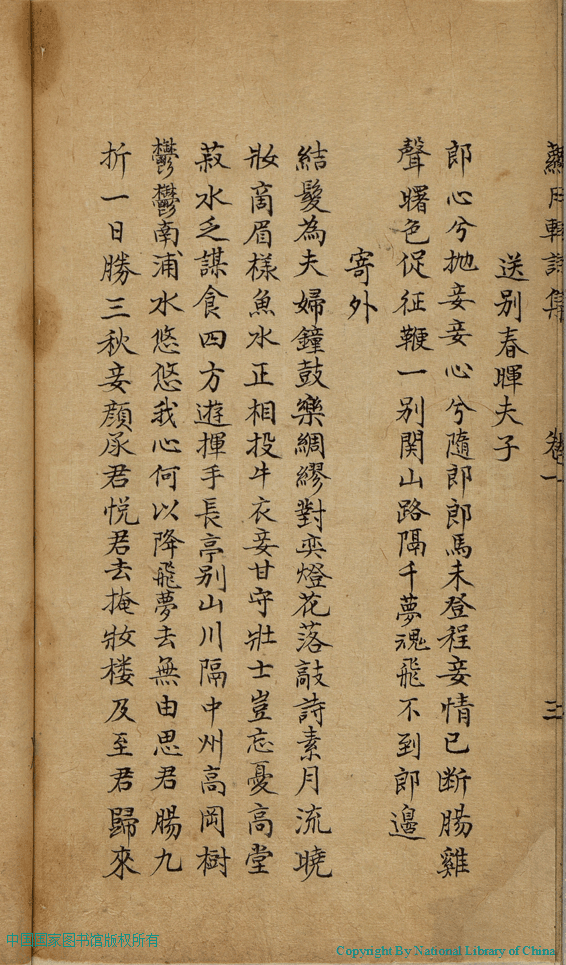 月軒詩集 卷一 三
送别春暉夫子
郎心兮抛妾妾心兮隨郎郎馬未登程妾情已断腸雞
聲曙色促征鞭一别関山路隔千夢魂飛不到郎邉
寄外
結髮為夫婦鐘鼓樂綢繆對奕燈花落敲詩素月流曉
妝啇眉樣魚水正相投牛衣妾甘守壮士豈忘憂高堂
菽水乏謀食四方遊揮手長亭别山川隔中州高岡樹
鬱鬱南浦水悠悠我心何以降飛夢去無由思君腸九
折一日勝三秋妾顔承君悦君去掩妝楼及至君歸來
中国国家图书馆版权所有
Copyright By National Library of China